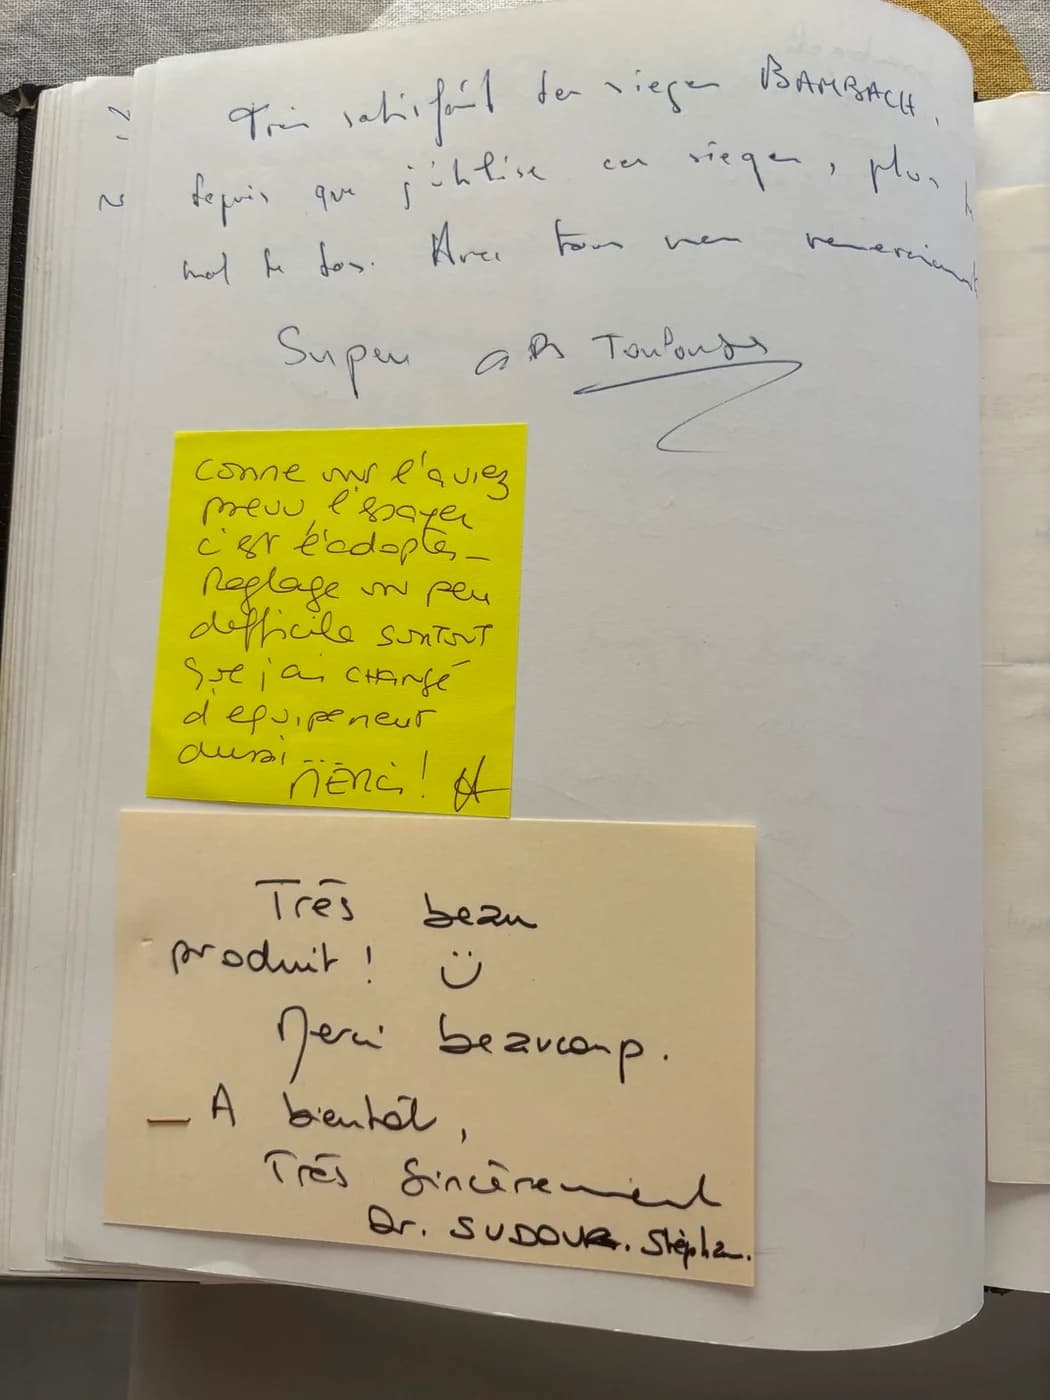 Très satisfait des sieges BAMBACH,
depuis que j'utilise ces sieges, plus
mal de dos. Avec tous mes remerciements
Super Toulouse
comme vous l'aviez
prevu, l'essayer
c'est l'adopter_
Reglage un peu
difficile surtout
que j'ai CHANGÉ
d'equipement
aussi ...
MERCI !
Très beau
produit ! ☺
Merci beaucoup.
A bientôt,
Très sincèrement
Dr. SUDOUR. Stéphan.